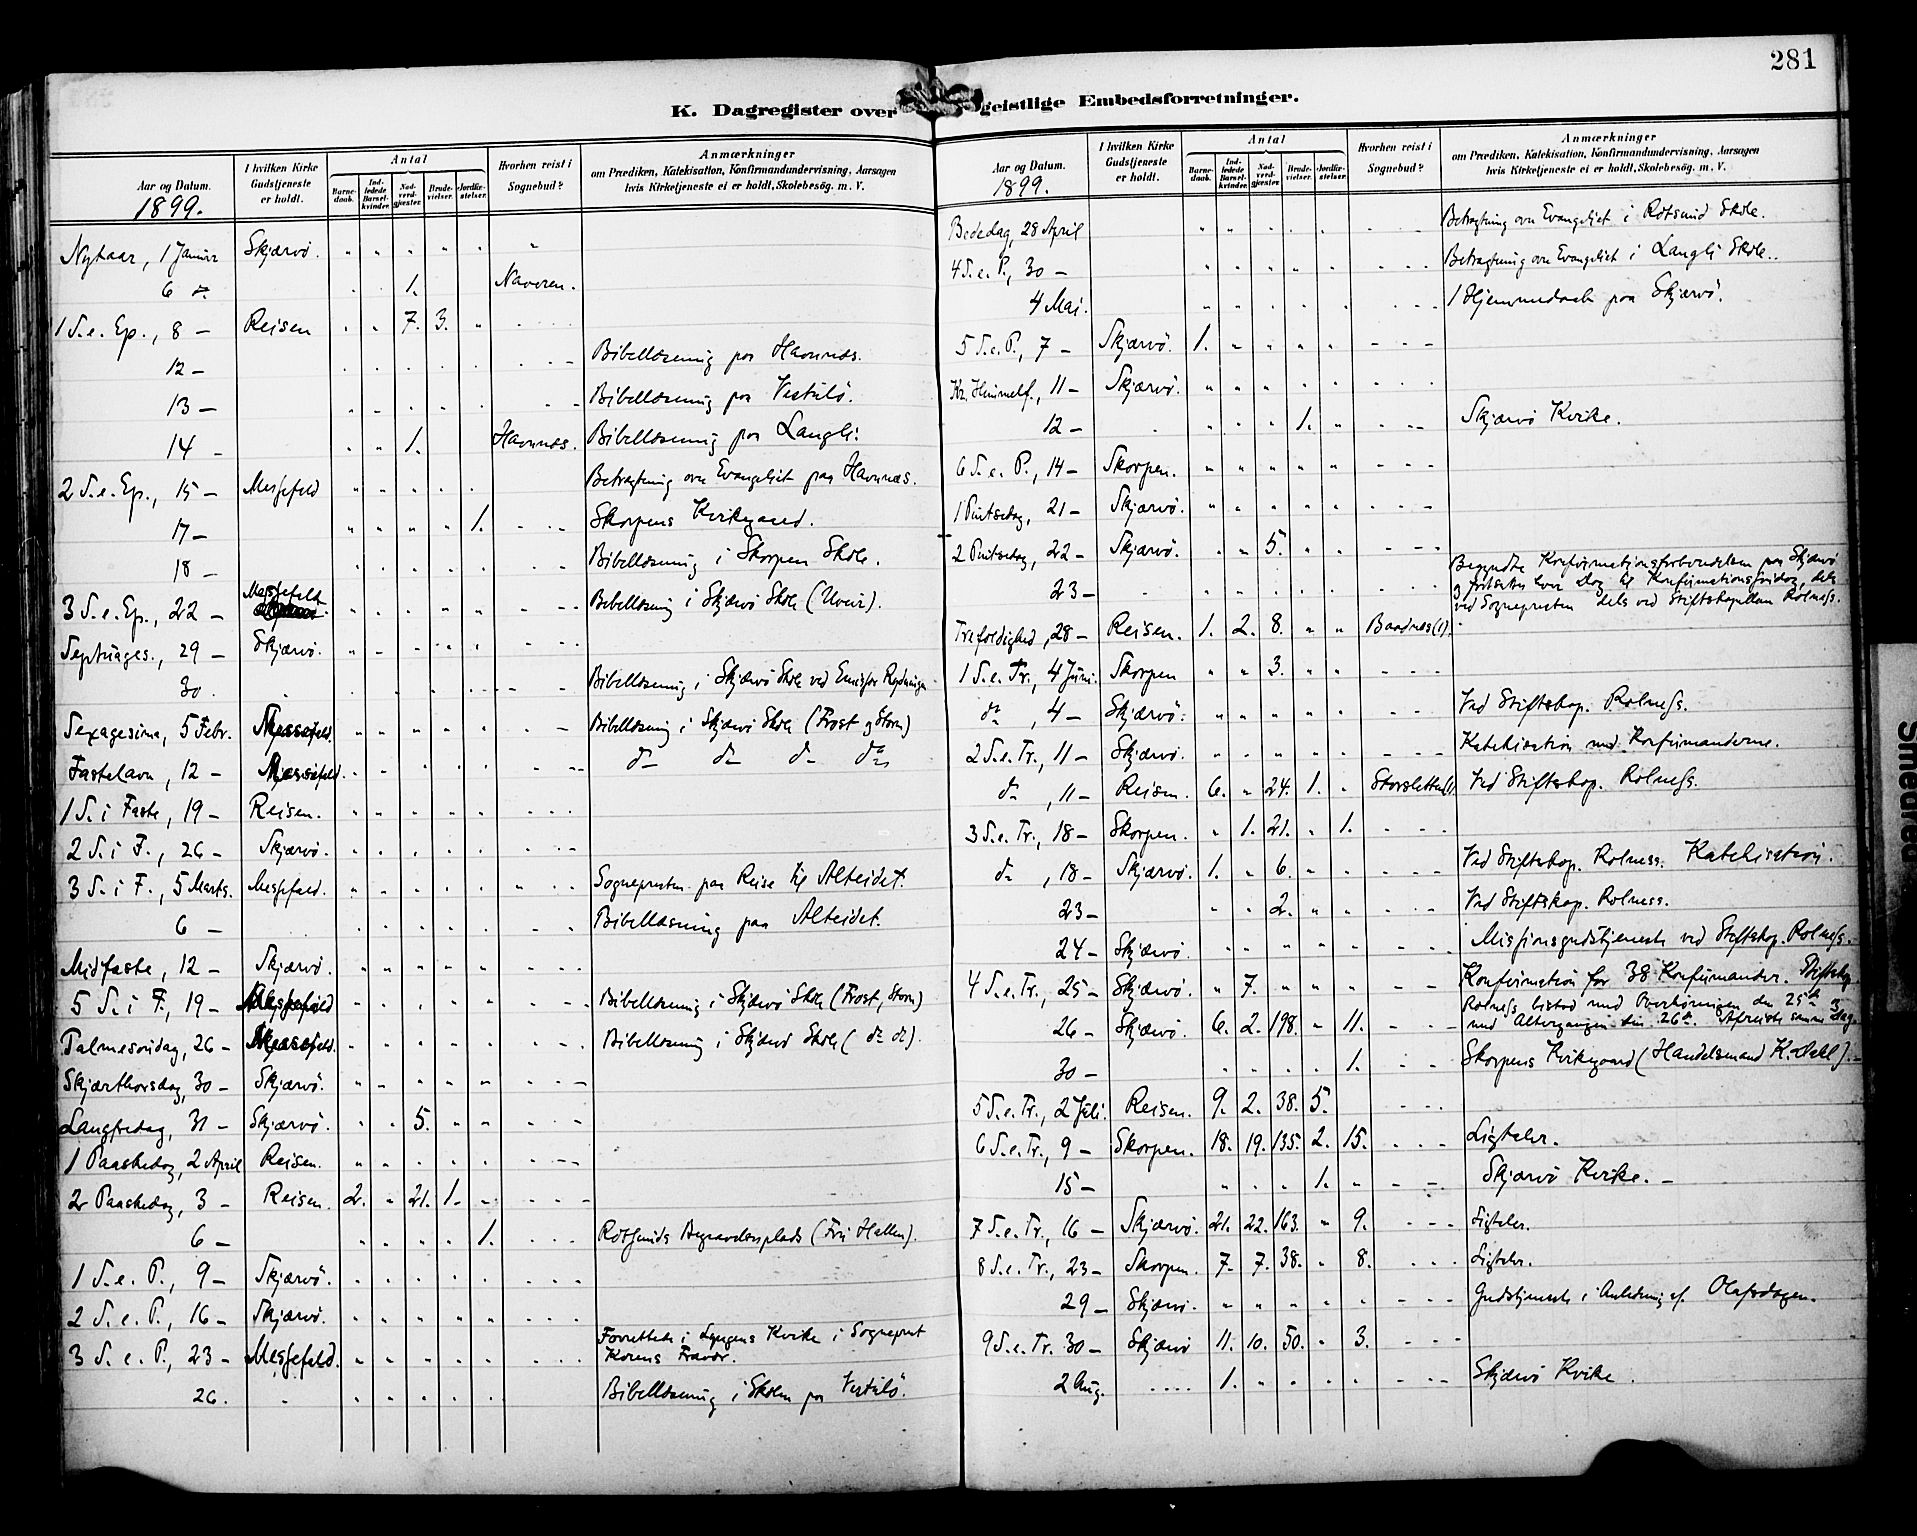 281
K. Dagregister over geistlige Embedsforretninger.
Aar og Datum. 1899.
I hvilken Kirke Gudstjeneste er holdt.
Antal
Barne-daab.
Ind-ledede Barsel-kvinder.
Nad-verd-gjæster.
Brude-vielser.
Jordfæ-stelser.
Hvorhen reist i Sognebud?
Anmærkninger
om Prædiken, Katekisation, Konfirmandundervisning, Aarsagen
hvis Kirketjeneste ei er holdt, Skolebesøg. m. V.
Nytaar, 1 Januar Skjærvö. " " " " " "
6 do. . . 1. Navren.
1 S. e. Ep., 8 – Reisen " " 7. 3. "
12 – Bibellæsning paa Havnnæs.
13 – Bibellæsning paa
14 – " " 1. Havnnæs. Bibellæsning paa Langli.
2 S. e. Ep., 15 – Messefald " " " " Betragtning over Evangeliet paa Havnnæs.
17 – " " " " 1. Skorpens Kirkegaard.
18 – Bibellæsning i Skorpen Skole.
3 S. e. Ep., 22 – Messefald Bibellæsning i Skjærvö Skole (Uveir).
Septuages., 29 – Skjærvö.
30. Bibellæsning i Skjærvö Skole ved Emissær
Sexagesima, 5 Febr. Messefald. Bibellæsning i Skjærvö Skole (Frost og Storm)
Fastelavn, 12 – Messefald. do do do do
1 S. i Faste, 19 – Reisen.
2 S. i F., 26 – Skjærvö.
3 S. i F., 5 Marts. Messefald. Sognepresten paa Reise til Alteidet.
6 – Bibellæsning paa Alteidet.
Midfaste, 12 – Skjærvö.
5 S. i F., 19 – Messefald Bibellæsning i Skjærvö Skole (Frost, Storm)
Palmesöndag, 26 – Messefald. Bibellæsning i Skjærvö Skole (do do).
Skjærthorsdag, 30 – Skjærvö.
Langfredag, 31 – Skjærvö. " " 5. " "
1 Paaskedag, 2 April Reisen.
2 Paaskedag, 3 – Reisen. 2. " 21. 1. "
6 – " " " " 1. Rotsunds Begravelsesplads (Fru Hallen).
1 S. e. P., 9 – Skjærvö.
2 S. e. P., 16 – Skjærvö.
3 S. e. P., 23 – Messefald. Forrettede i Lyngens Kirke i Sogneprest
Korens Fravær.
26. Bibellæsning i Skolen paa
Aar og Datum. 1899.
I hvilken Kirke Gudstjeneste er holdt.
Antal
Barne-daab.
Ind-ledede Barsel-kvinder.
Nad-verd-gjæster.
Brude-vielser.
Jordfæ-stelser.
Hvorhen reist i Sognebud?
Anmærkninger
om Prædiken, Katekisation, Konfirmandundervisning, Aarsagen
hvis Kirketjeneste ei er holdt, Skolebesøg. m. V.
Bededag, 28 April Betragtning over Evangeliet i Rotsund Skole.
4 S. e. P., 30 – Betragtning over Evangeliet i Langli Skole.
4 Mai. 1 Hjemmedaab paa Skjærvö.
5 S. e. P., 7 – Skjærvö. 1. " " " "
Kr. Himmelf., 11 – Skjærvö.
12 – " " " 1. " Skjærvö Kirke.
6 S. e. P., 14 – Skorpen.
1 Pintsedag, 21 – Skjærvö.
2 Pintsedag, 22 – Skjærvö. " " 5. " "
23 – Begyndte Konfirmationsforberedelsen paa Skjærvö
og fortsatte hver Dag til Konfirmationsfredag, dels
ved Sognepresten dels ved Stiftskapellan Rolness.
Trefoldighed, 28 – Reisen. 1. 2. 8. " " Baadnes (1).
1 S. e. Tr., 4 Juni. Skorpen " " 3. " "
do, 4 – Skjærvö. Ved Stiftskap. Rolness.
2 S. e. Tr., 11 – Skjærvö. Katekisation med Konfirmanderne.
do, 11 – Reisen. 6. " 24. 1. " Storsletten (1). Ved Stiftskap. Rolness.
3 S. e. Tr., 18 – Skorpen. " 1. 21. " 1.
do, 18 – Skjærvö. 1. " 6. " " Ved Stiftskap. Rolness. Katekisation.
23 – " " 2. " " Ved Stiftskap. Rolness.
24 – Skjærvö. Missionsgudstjeneste ved Stiftskap. Rolness.
4 S. e. Tr., 25 – Skjærvö. " 7. " " " Konfirmation for 38 Konfirmander. Stiftskap.
Rolness bistod med Overhöringen den 25de og
26 – Skjærvö. 6. 2. 198. " 11. med Altergangen den 26de. Afreiste samme Dag.
30 – " " " " 1. Skorpens Kirkegaard (Handelsmand K. Dahl).
5 S. e. Tr., 2 Juli. Reisen. 9. 2. 38. 5.
6 S. e. Tr., 9 – Skorpen. 18. 19. 135. 2. 15. Ligtaler.
15 – " " " 1. " Skjærvö Kirke. –
7 S. e. Tr., 16 – Skjærvö. 21. 22. 163. " 9. Ligtaler.
8 S. e. Tr., 23 – Skorpen. 7. 7. 38. " 8. Ligtaler.
29 – Skjærvö. Gudstjeneste i Anledning af Olafsdagen.
9 S. e. Tr. 30 – Skjærvö 11. 10. 50. " 3.
2 Aug. .... 1. " " " " Skjærvö Kirke.